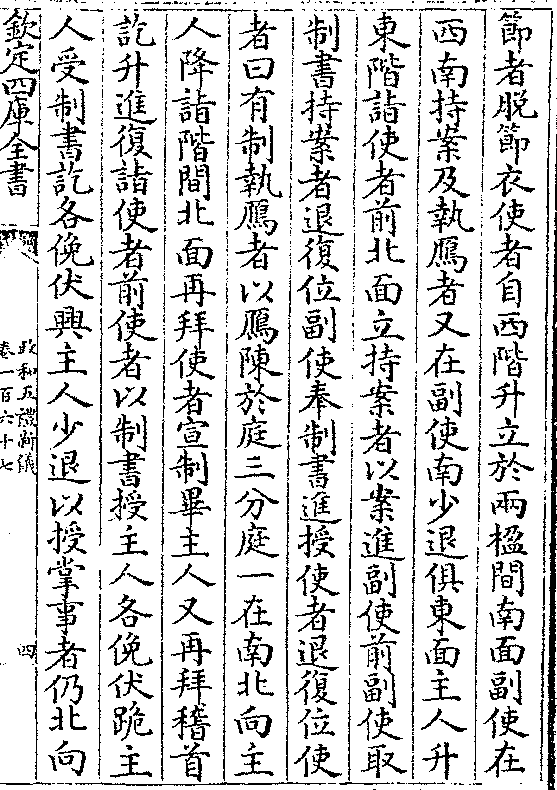 節者脱節衣使者自西階升立於兩楹間南面副使在
西南持案及執鴈者又在副使南少退俱東面主人升
東階詣使者前北面立持案者以案進副使前副使取
制書持案者退復位副使奉制書進授使者退復位使
者曰有制執鴈者以鴈陳於庭三分庭一在南北向主
人降詣階間北面再拜使者宣制畢主人又再拜稽首
訖升進復詣使者前使者以制書授主人各俛伏跪主
人受制書訖各俛伏興主人少退以授掌事者仍北向
欽定四庫全書
政和五禮新儀
卷一百六十七
四